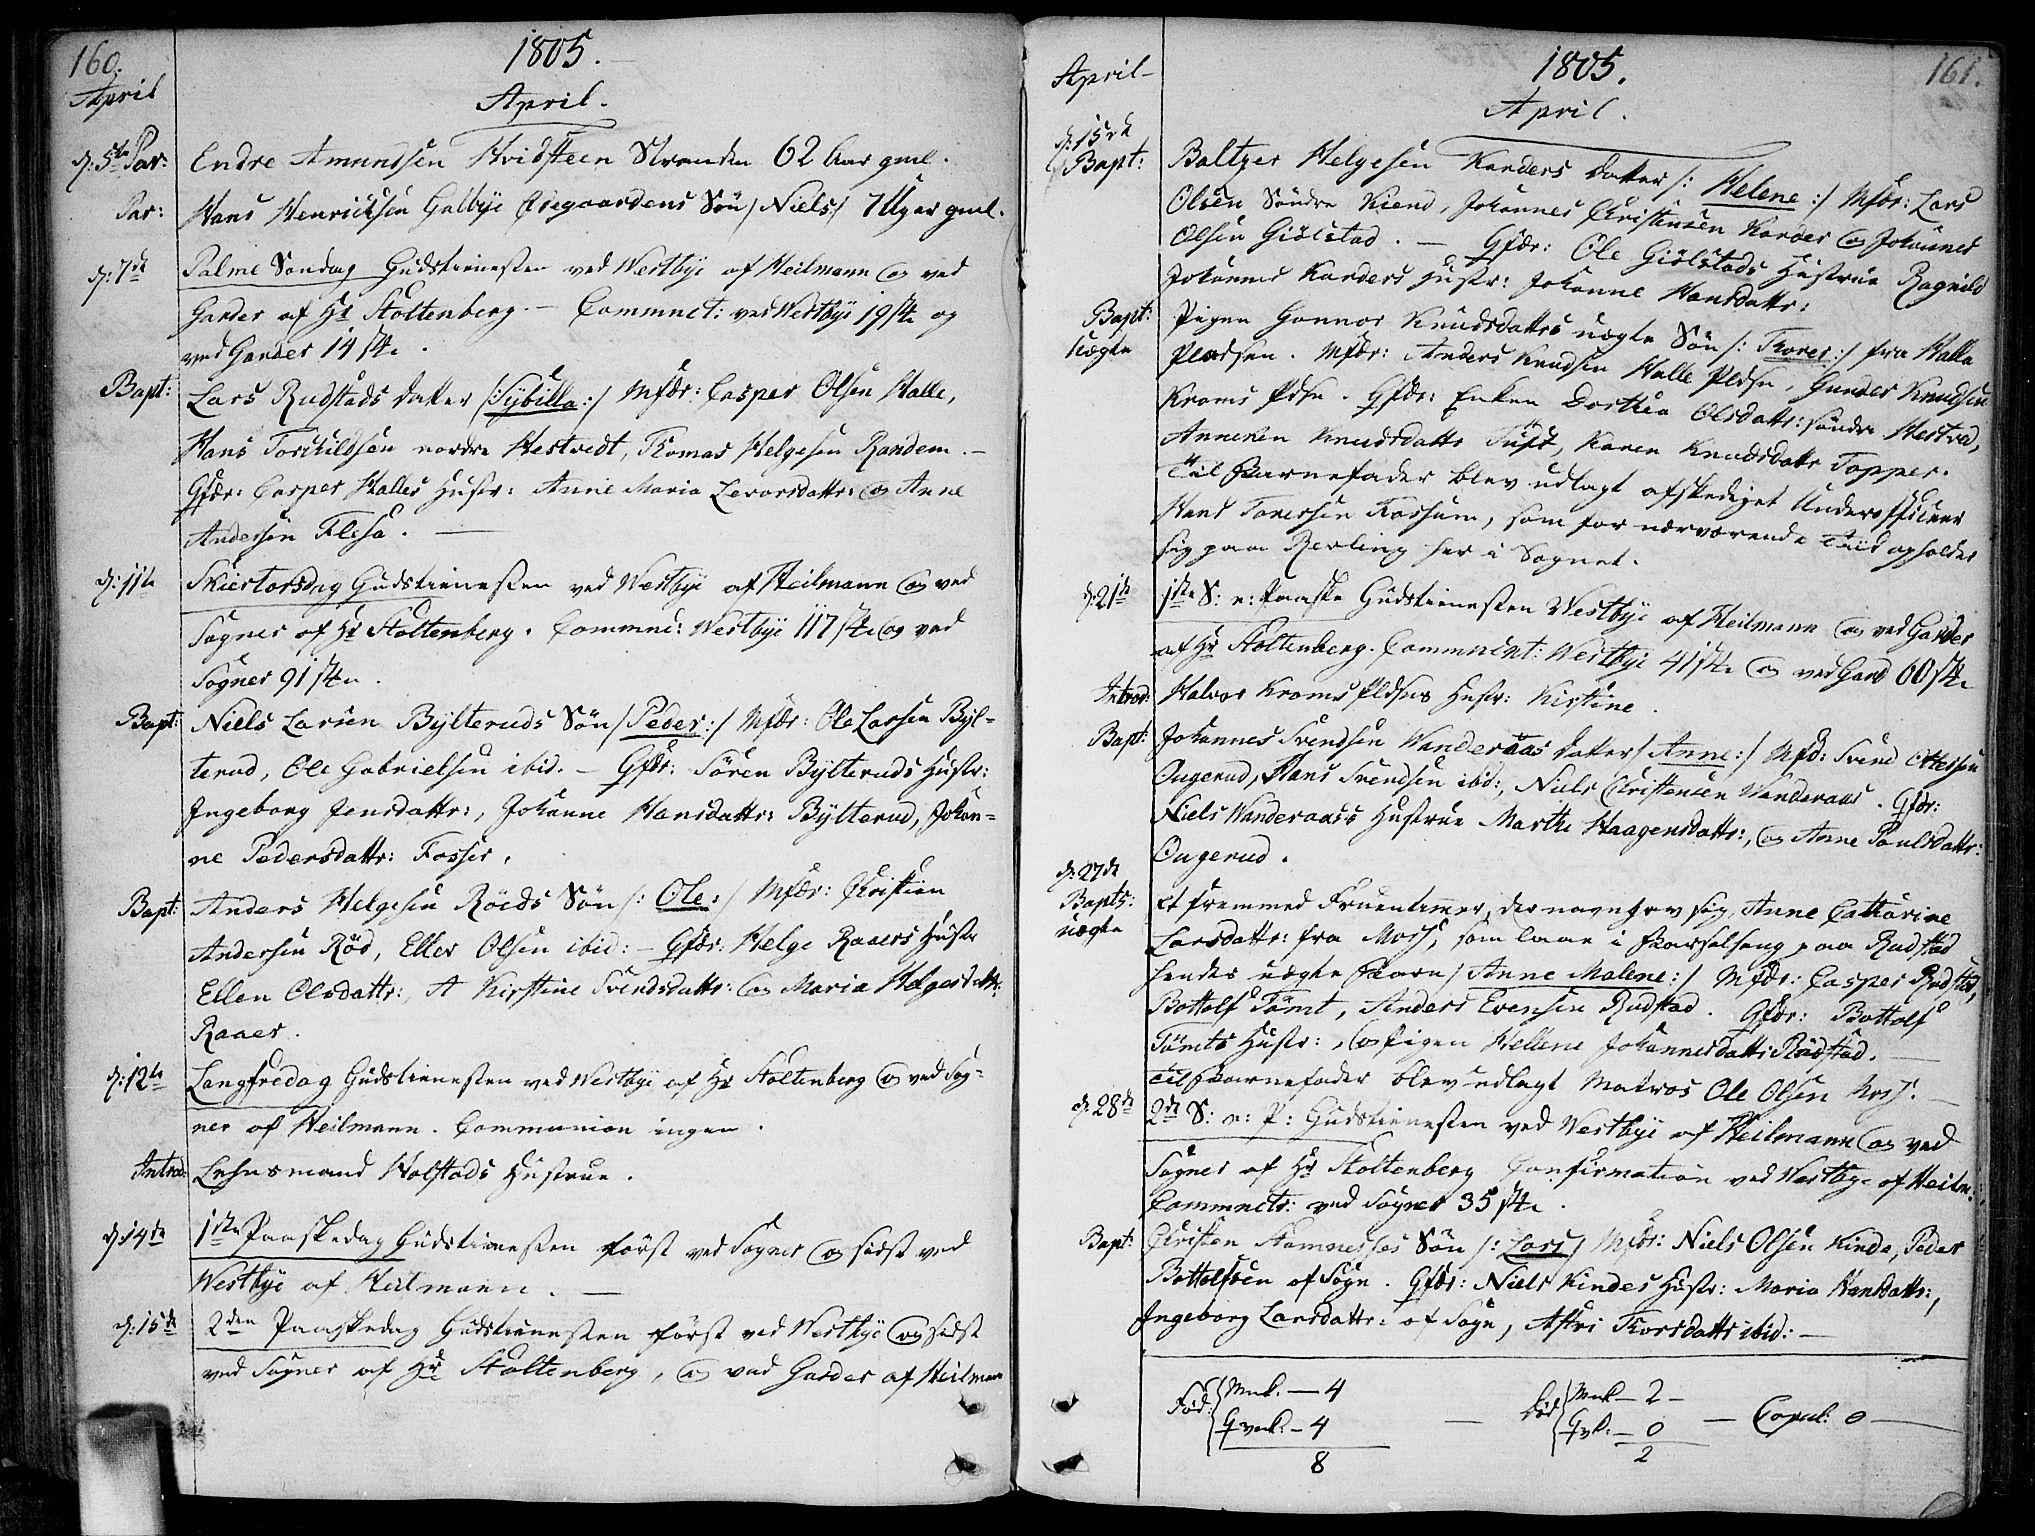 160.
1805.
April
April.
d: 5te Par: Endre Amundsen Hvidsteen Stranden 62 Aar gml.
Par: Hans Henricksen Galbye Øvregaardens Søn /Niels/ 7 Uger gml.
d: 7de Palme Søndag Gudstienesten ved Westbye af Heilmann og ved
Garder af Hr Stoltenberg. – Communct: ved Westbye 19 st. og
ved Garder 14 st.
Bapt: Lars Rudstads datter /:Sybilla:/ Mfdr: Casper Olsen Halle,
Hans Torkildsen nordre Hestvedt, Thomas Helgesen Randem. –
Gfdr: Casper Halles Hustr: Anne Maria Levorsdattr: og Anne
Andersen Flesa. –
d: 11te Skiertorsdag Gudstienesten ved Westbye af Heilmann og ved
Sogner af Hr Stoltenberg. Commun: Westbye 117 st. og ved
Sogner 91 st.
Bapt: Niels Larsen Bylteruds Søn /:Peder:/ Mfdr: Ole Larsen Byl=
terud, Ole Gabrielsen ibid. – Gfdr: Søren Bylteruds Hustr:
Ingeborg Jensdattr:, Johanne Hansdattr: Bylterud, Johan=
ne Pedersdattr: Fosser.
Bapt: Anders Helgesen Røeds Søn /:Ole:/ Mfdr: Christien
Andersen Rød, Eller Olsen ibid: – Gfdr: Helge Raaers Hustr
Ellen Olsdattr:, A Kirstine Svendsdattr: og Maria Helgesdattr:
Raaer.
d: 12te Langfredag Gudstienesten ved Westbye af Hr Stoltenberg og ved Sog=
ner af Heilmann. Communion ingen.
Introd: Lehnsmand Holstads Hustrue.
d: 14de 1ste Paaskedag Gudstienesten først ved Sogner og sidst ved
Westbye af Heilmann. –
d: 15de 2den Paaskedag Gudstienesten først ved Westbye og sidst
ved Sogner af Hr Stoltenberg, og ved Garder af Heilmann
161.
1805.
April –
April.
d: 15de
Bapt: Baltzer Helgesen Karders datter /:Helene:/ Mfdr: Lars
Olsen Søndre Kiend, Johannes Christensen Karder og Johannes
Olsen Giølstad. – Gfdr: Ole Giølstads Hustrue Ragnild
Johannes Karders Hustr: Johanne Hansdattr:
Bapt: Pigen Gonnor Knudsdattrs uægte Søn /:Thorer:/ fra Halle
uægte Pladsen. Mfdr: Anders Knudsen Halle Pldsn, Gunder Knudsen
Kroms Pldsn. Gfdr: Enken Dorthea Olsdattr: søndre Hestved,
Anneken Knudsdattr Tuft, Karen Knudsdattr Topper.
Til Barnefader blev udlagt afskediget Underofficeer
Hans Toresen Fossum, som for nærværende Tiid opholder
sig paa Rerling her i Sognet.
d: 21de 1ste S: e: Paaske Gudstienesten Westbye af Heilmann og ved Garder
af Hr Stoltenberg. Communict: Westbye 41 st. og ved Gard 60 st.
Introd: Halvor Kroms Pldsns Hustr: Kirstine.
Bapt: Johannes Svendsen Wanderaas datter /:Anne:/ Mfd: Svend Ottersen
Ougerud, Hans Svendsen ibid:, Niels Christensen Wanderaas. Gfdr:
Niels Wanderaas's Hustrue Marthe Haagensdattr:, og Anne Paulsdattr:
Ougerud.
d: 27de
Bapts: et fremmed Fruentimmer, der navngav sig Anne Cathrine
uægte Larsdattr: fra Moss, som laae i Barselseng paa Rudstad
hendes uægte Barn /:Anne Malene:/ Mfdr: Casper Rudstad,
Bottolf Tømt, Anders Evensen Rudstad. Gfdr: Bottolf
Tømts Hustr:, og Pigen Hellene Johannesdattr Rudstad. –
Til Barnefader blev udlagt Matros Ole Olsen Moss. –
d: 28de 2de S: e: P: Gudstienesten ved Westbye af Heilmann og ved
Sogner af Hr Stoltenberg Confirmation ved Westbye af Heilm:
Communct: ved Sogner 35 st.
Bapt: Christen Stamnesses Søn /:Lars/ Mfdr: Niels Olsen Kinde, Peder
Bottolfsen af Sogn. Gfdr: Niels Kindes Hustr: Maria Hansdattr:,
Ingeborg Larsdattr: af Sogn, Astri Thorsdattr ibid: –
Fød: { Mnk. – 4 – Død { Mnk – 2 – – Copul: 0 –
Qvnk: – 4 Qvk: – 0
8 2